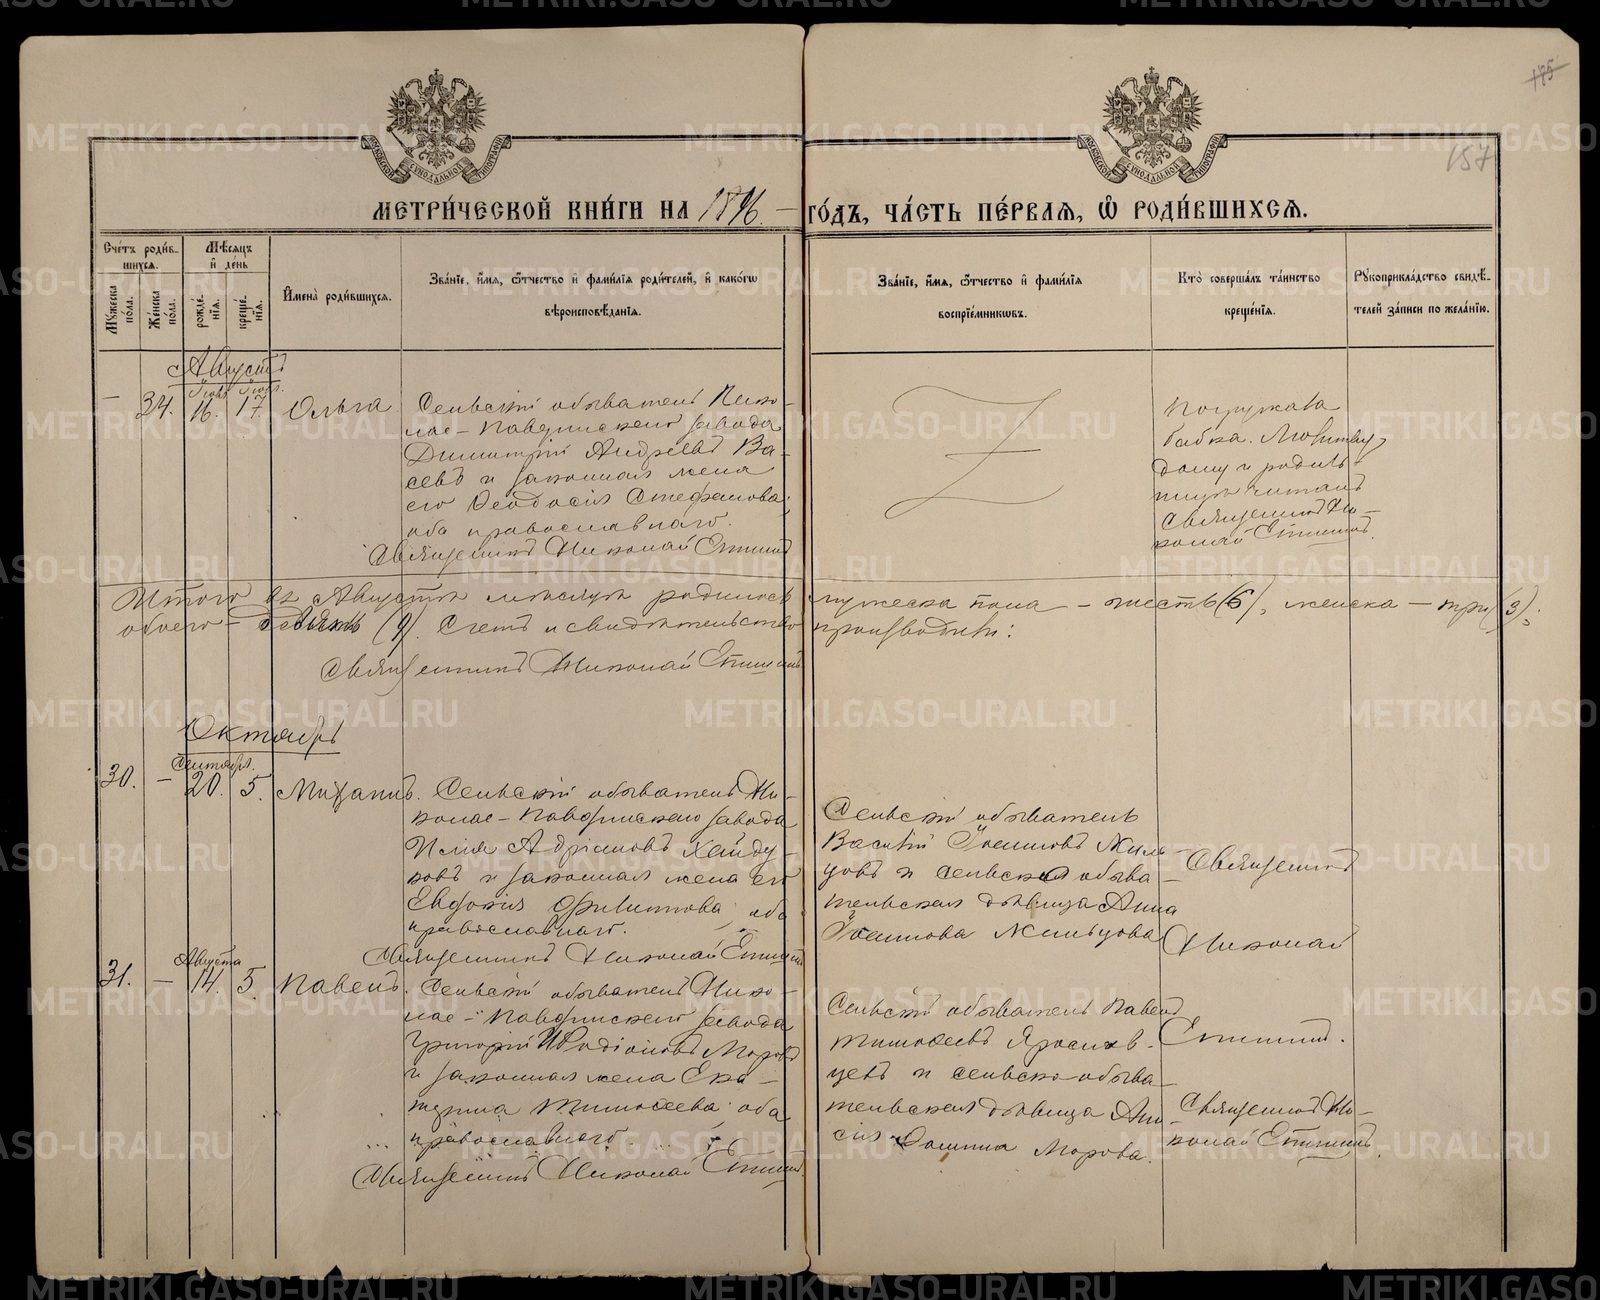 175
157
МОСКОВСКОЙ СѴНОДАЛЬНОЙ ТИПОГРАФІИ
МОСКОВСКОЙ СѴНОДАЛЬНОЙ ТИПОГРАФІИ
МЕТРИ́ЧЕСКОЙ КНИ́ГИ НА 1896. — ГО́ДЪ, ЧА́СТЬ ПЕ́РВАѦ, Ѡ҆ РОДИ́ВШИХСѦ.
Сче́тъ роди́в-
шихся.
Мѣ́сяцъ
и҆ де́нь
Мꙋ́жеска по́ла.
Же́нска по́ла.
рожде́-нїѧ.
креще́-нїѧ.
И҆мена̀ роди́вшихся.
Зва́нїе, и҆́мя, ѻ҆́тчество и҆ фами́лїя роди́телей, и҆ како́гѡ
вѣроисповѣ́данїя.
Зва́нїе, и҆́мя, ѻ҆́тчество и҆ фами́лїя
воспрїе́мникѡвъ.
Кто̀ соверша́лъ та́инство
креще́нїя.
Рꙋкоприкла́дство свидѣ́-
телей за́писи по жела́нїю.
Августъ
— 34. 16. 17. Ольга
Сельскій обыватель Нико-
лае-Павдинскаго завода
Димитрій Андреевъ Ва-
севъ и законная жена
его Ѳеодосія Стефанова;
оба православнаго.
Священникъ Николай
Погружала
бабка.
дому и родиль-
ницѣ читалъ
Священникъ Ни-
колай
Итого въ Августѣ мѣсяцѣ родилось мужеска пола — шесть (6), женска — три (3);
обоего — девять (9). Счетъ и свидѣтельство производили:
Священникъ Николай
Октябрь
Сентября.
30. — 20. 5. Михаилъ.
Сельскій обыватель Ни-
колае-Павдинскаго завода
Илія Адріановъ Хайду-
ковъ и законная жена его
Евдокія Филиппова; оба
православнаго.
Священникъ Николай
Сельскій обыватель
Василій Іоанновъ Жиль-
цовъ и сельская обыва-
тельская дѣвица Анна
Іоаннова Жильцова
Священникъ
Николай
Августа
31. — 14. 5. Павелъ.
Сельскій обыватель Нико-
лае-Павдинскаго завода
Григорій Родіоновъ Моровъ
и законная жена Ека-
терина Тимоѳеева; оба
православнаго.
Священникъ Николай
Сельскій обыватель Павелъ
Тимоѳеевъ Ярослав-
цевъ и сельско-обыва-
тельская дѣвица Ани-
сія Морова.
Священникъ Ни-
колай
METRIKI.GASO-URAL.RU